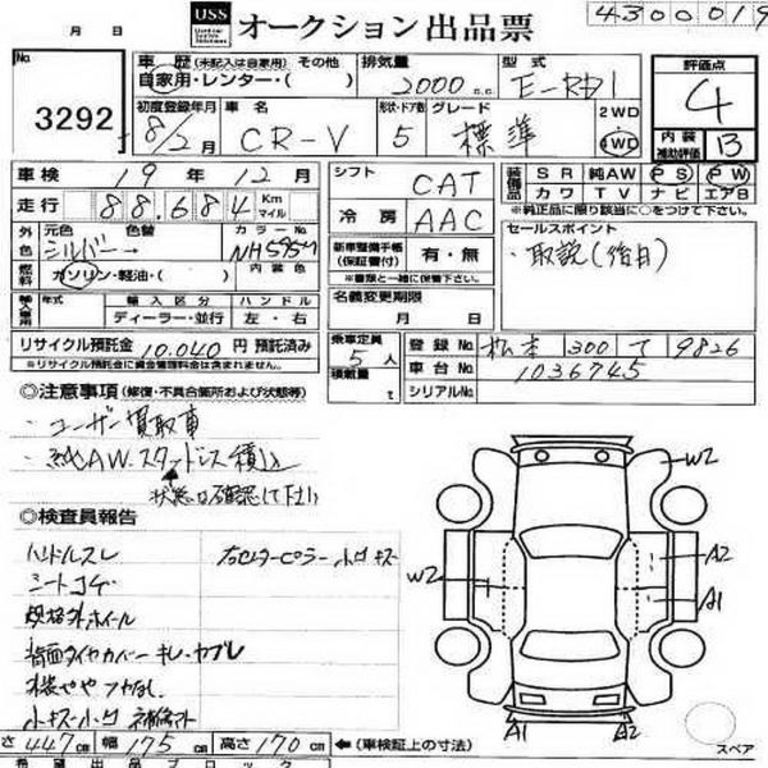 4300019
USS オークション出品票
月 日
No. 3292
車歴 (未記入は自家用) その他
自家用・レンター・( )
排気量 2000 c.c.
型式 E-RD1
評価点 4
内装補助評価 B
初度登録年月 8/2月
車名 CR-V
形状・ドア数 5
グレード 標準
2WD
4WD
車検 19年 12月
走行 88.684 Km マイル
シフト CAT
冷房 AAC
装備品 SR 純AW PS PW
カワ TV ナビ エアB
※純正品に限り該当に○をつけて下さい。
外色 元色 シルバー 色替 → カラーNo. NH595M
燃料 ガソリン・軽油・( ) 内装色
新車整備手帳 (保証書付) 有・無
※書類と一緒に保管下さい。
セールスポイント
・取説(後日)
輸入車用 年式 輸入区分 ハンドル
ディーラー・並行 左・右
名義変更期限
月 日
リサイクル預託金 10.040 円 預託済み
※リサイクル預託金に資金管理料金は含まれません。
乗車定員 5人
積載量 t
登録No. 松本 300 て 9826
車台No. 1036745
シリアルNo.
◎注意事項 (修復・不具合箇所および状態等)
・ユーザー買取車
・純AW.スタッドレス積込
状態は確認して下さい
◎検査員報告
ハンドルスレ
シートコゲ
規格外ホイール
背面タイヤカバー キレ・ヤブレ
小キズ・小凹
右センターピラー 小凹 キズ
W2
A2
W2
A1
A1
A2
スペア
さ 447cm 幅 175cm 高さ 170cm ←(車検証上の寸法)
希望出品ブロック